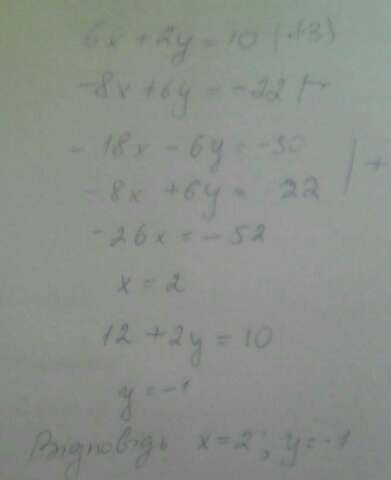 6x + 2y = 10 | (-3)
-8x + 6y = -22 |
- 18x - 6y = -30
- 8x + 6y = 22 | +
-26x = -52
x = 2
12 + 2y = 10
y = -1
Відповідь x = 2; y = -1